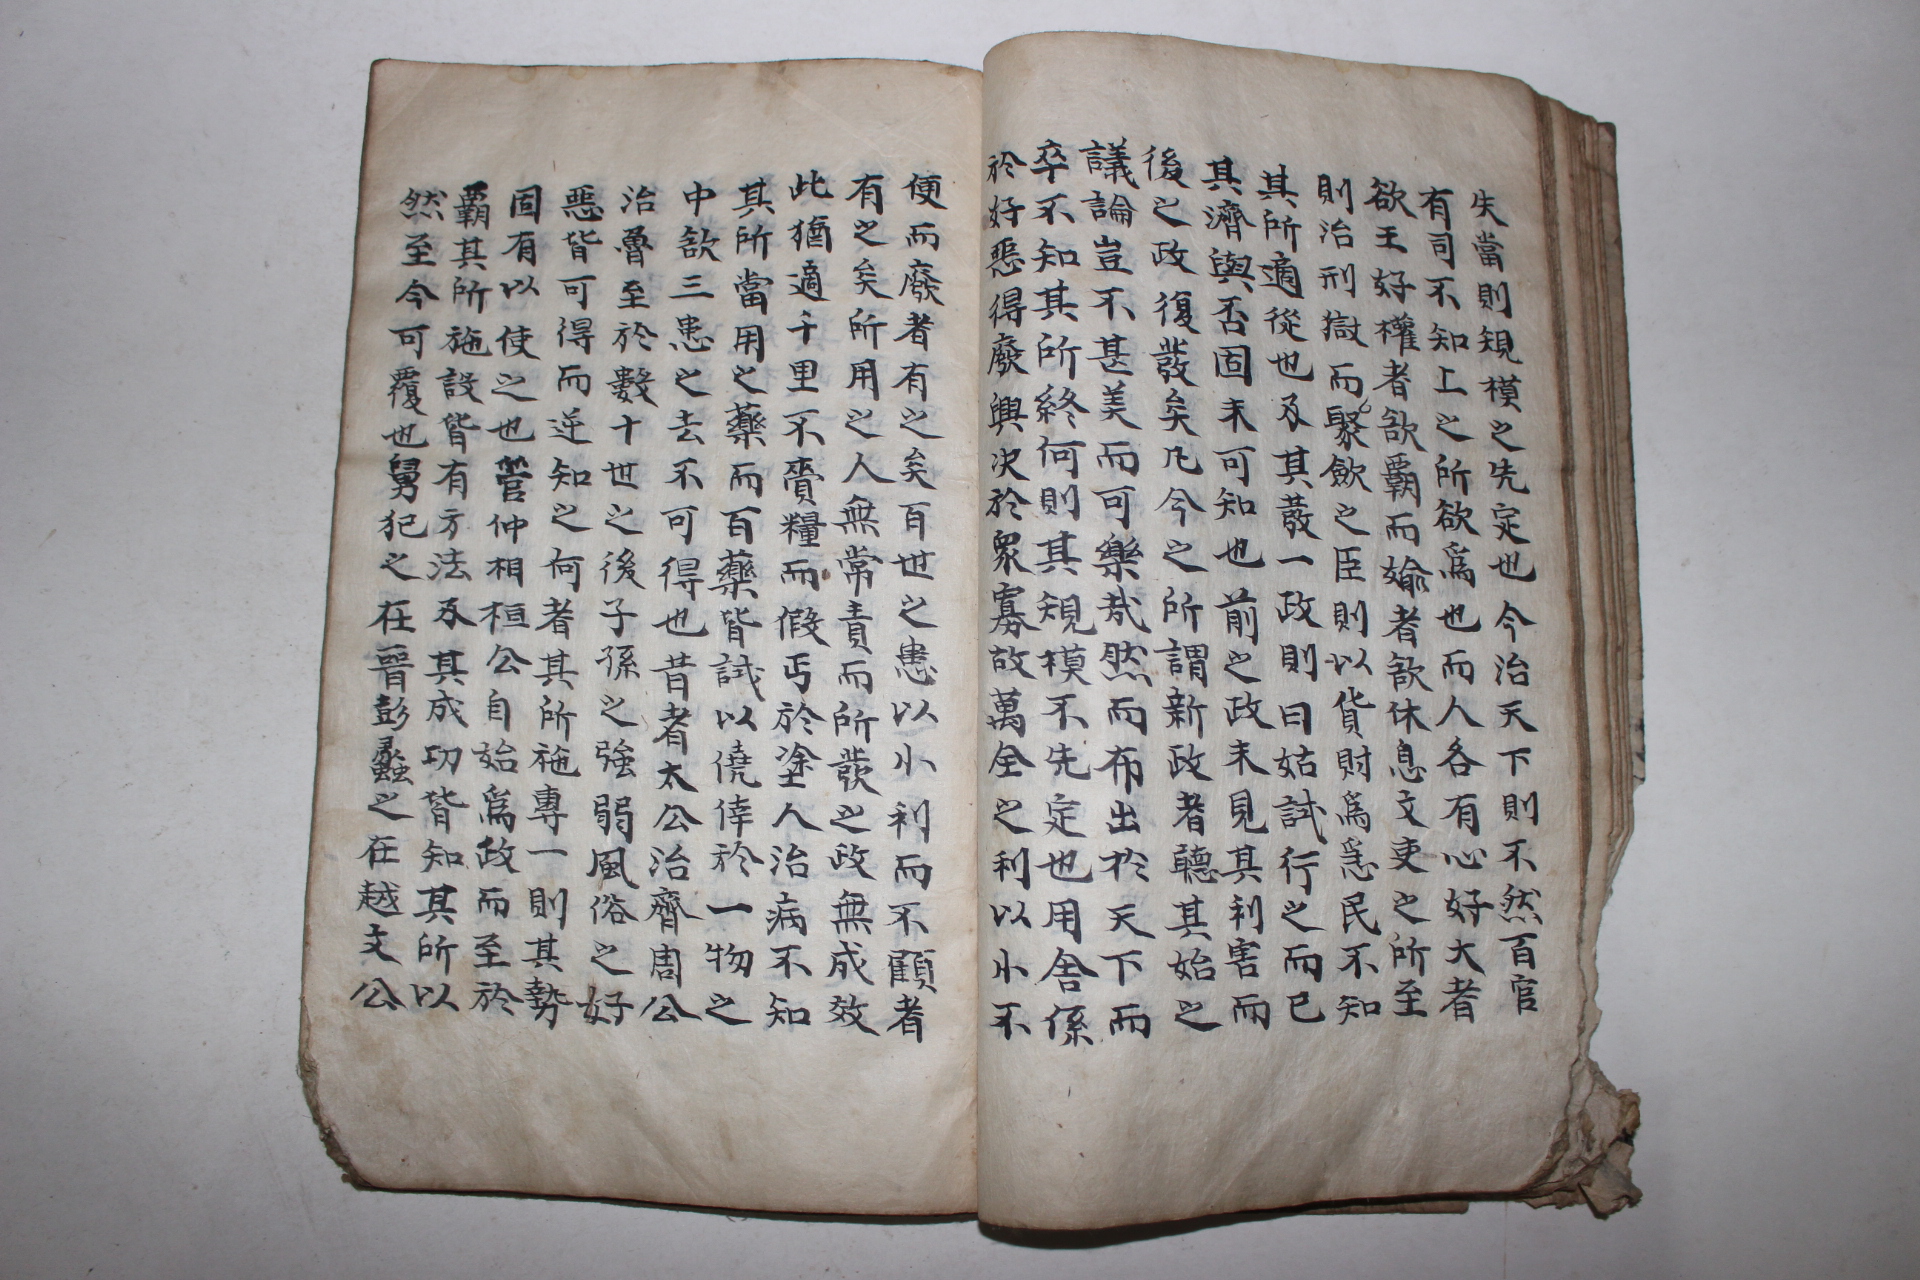 失當則規模之先定也今治天下則不然百官
有司不知上之所欲爲也而人各有心好大者
欲王好權者欲霸而婾者欲休息文吏之所至
則治刑獄而聚斂之臣則以貨財爲急民不知
其所適從也及其發一政則曰姑試行之而已
其濟與否固未可知也前之政未見其利害而
後之政復發矣凡今之所謂新政者聽其始之
議論豈不甚美而可樂哉然而布出於天下而
卒不知其所終何則其規模不先定也用舍係
於好惡得廢興決於衆寡故萬全之利以小不
便而廢者有之矣百世之患以小利而不顧者
有之矣所用之人無常責而所發之政無成效
此猶適千里不齎糧而假丐於塗人治病不知
其所當用之藥而百藥皆試以僥倖於一物之
中欲三患之去不可得也昔者太公治齊周公
治魯至於數十世之後子孫之強弱風俗之好
惡皆可得而逆知之何者其所施專一則其勢
固有以使之也管仲相桓公自始爲政而至於
霸其所施設皆有方法及其成功皆知其所以
然至今可覆也舅犯之在晉彭蠡之在越文公